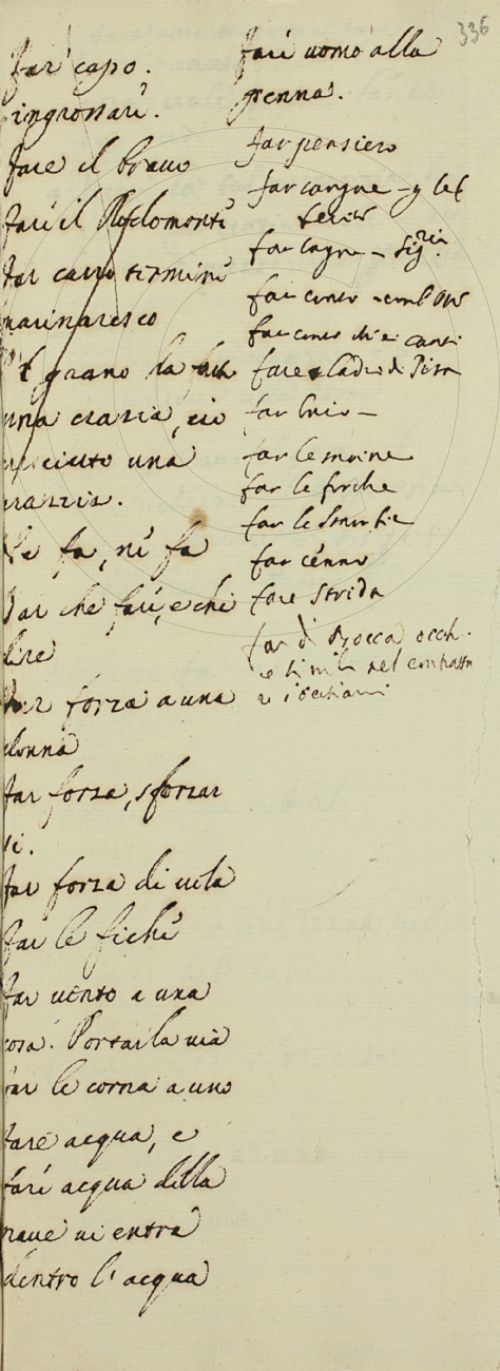 336
far capo.
ingrossare.
fare il bravo
fare il Rodomonte
far carro termine
marinaresco
grano ha
una crazia, cio
cresciuto una
crazzia.
Ne fa, ne fa
far che fare, e che
dire
far forza a una
donna
far forza, sforzar
si.
far forza di vela
far le fiche
far vento a una
cosa. Portarla via
far le corna a uno
fare acqua, e
fare acqua della
nave vi entra
dentro l'acqua
fare uomo alla
penna.
far pensiero
far carne
far
far conto
far conto che e canti
fare ladro di Pisa
far buio
far le moine
far le forche
far le smorfie
far cenno
fare strida
far di bocca occh.
e simile nel contrasto